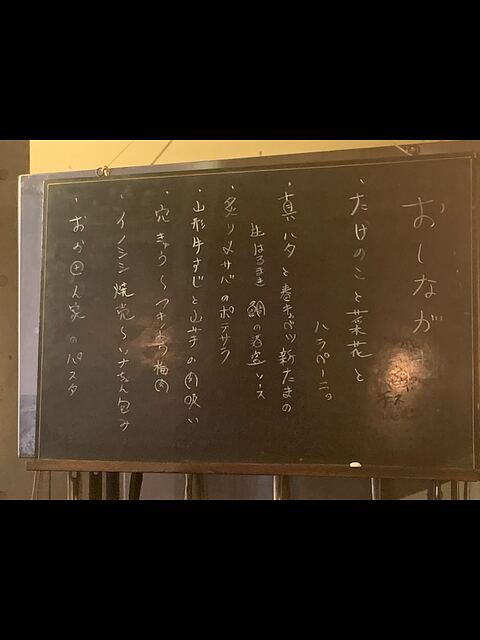 おしながき
・たけのこと菜花と
ハラペーニョ
・真ハタと春キャベツ新たまの
生はるまき 鯛の酒盗ソース
・炙り〆サバのポテサラ
・山形牛すじと山芋の肉吸い
・穴きゅう〜フキノ 梅肉
・イノシシ焼売〜ソナさん包み
・おお田ん家のパスタ